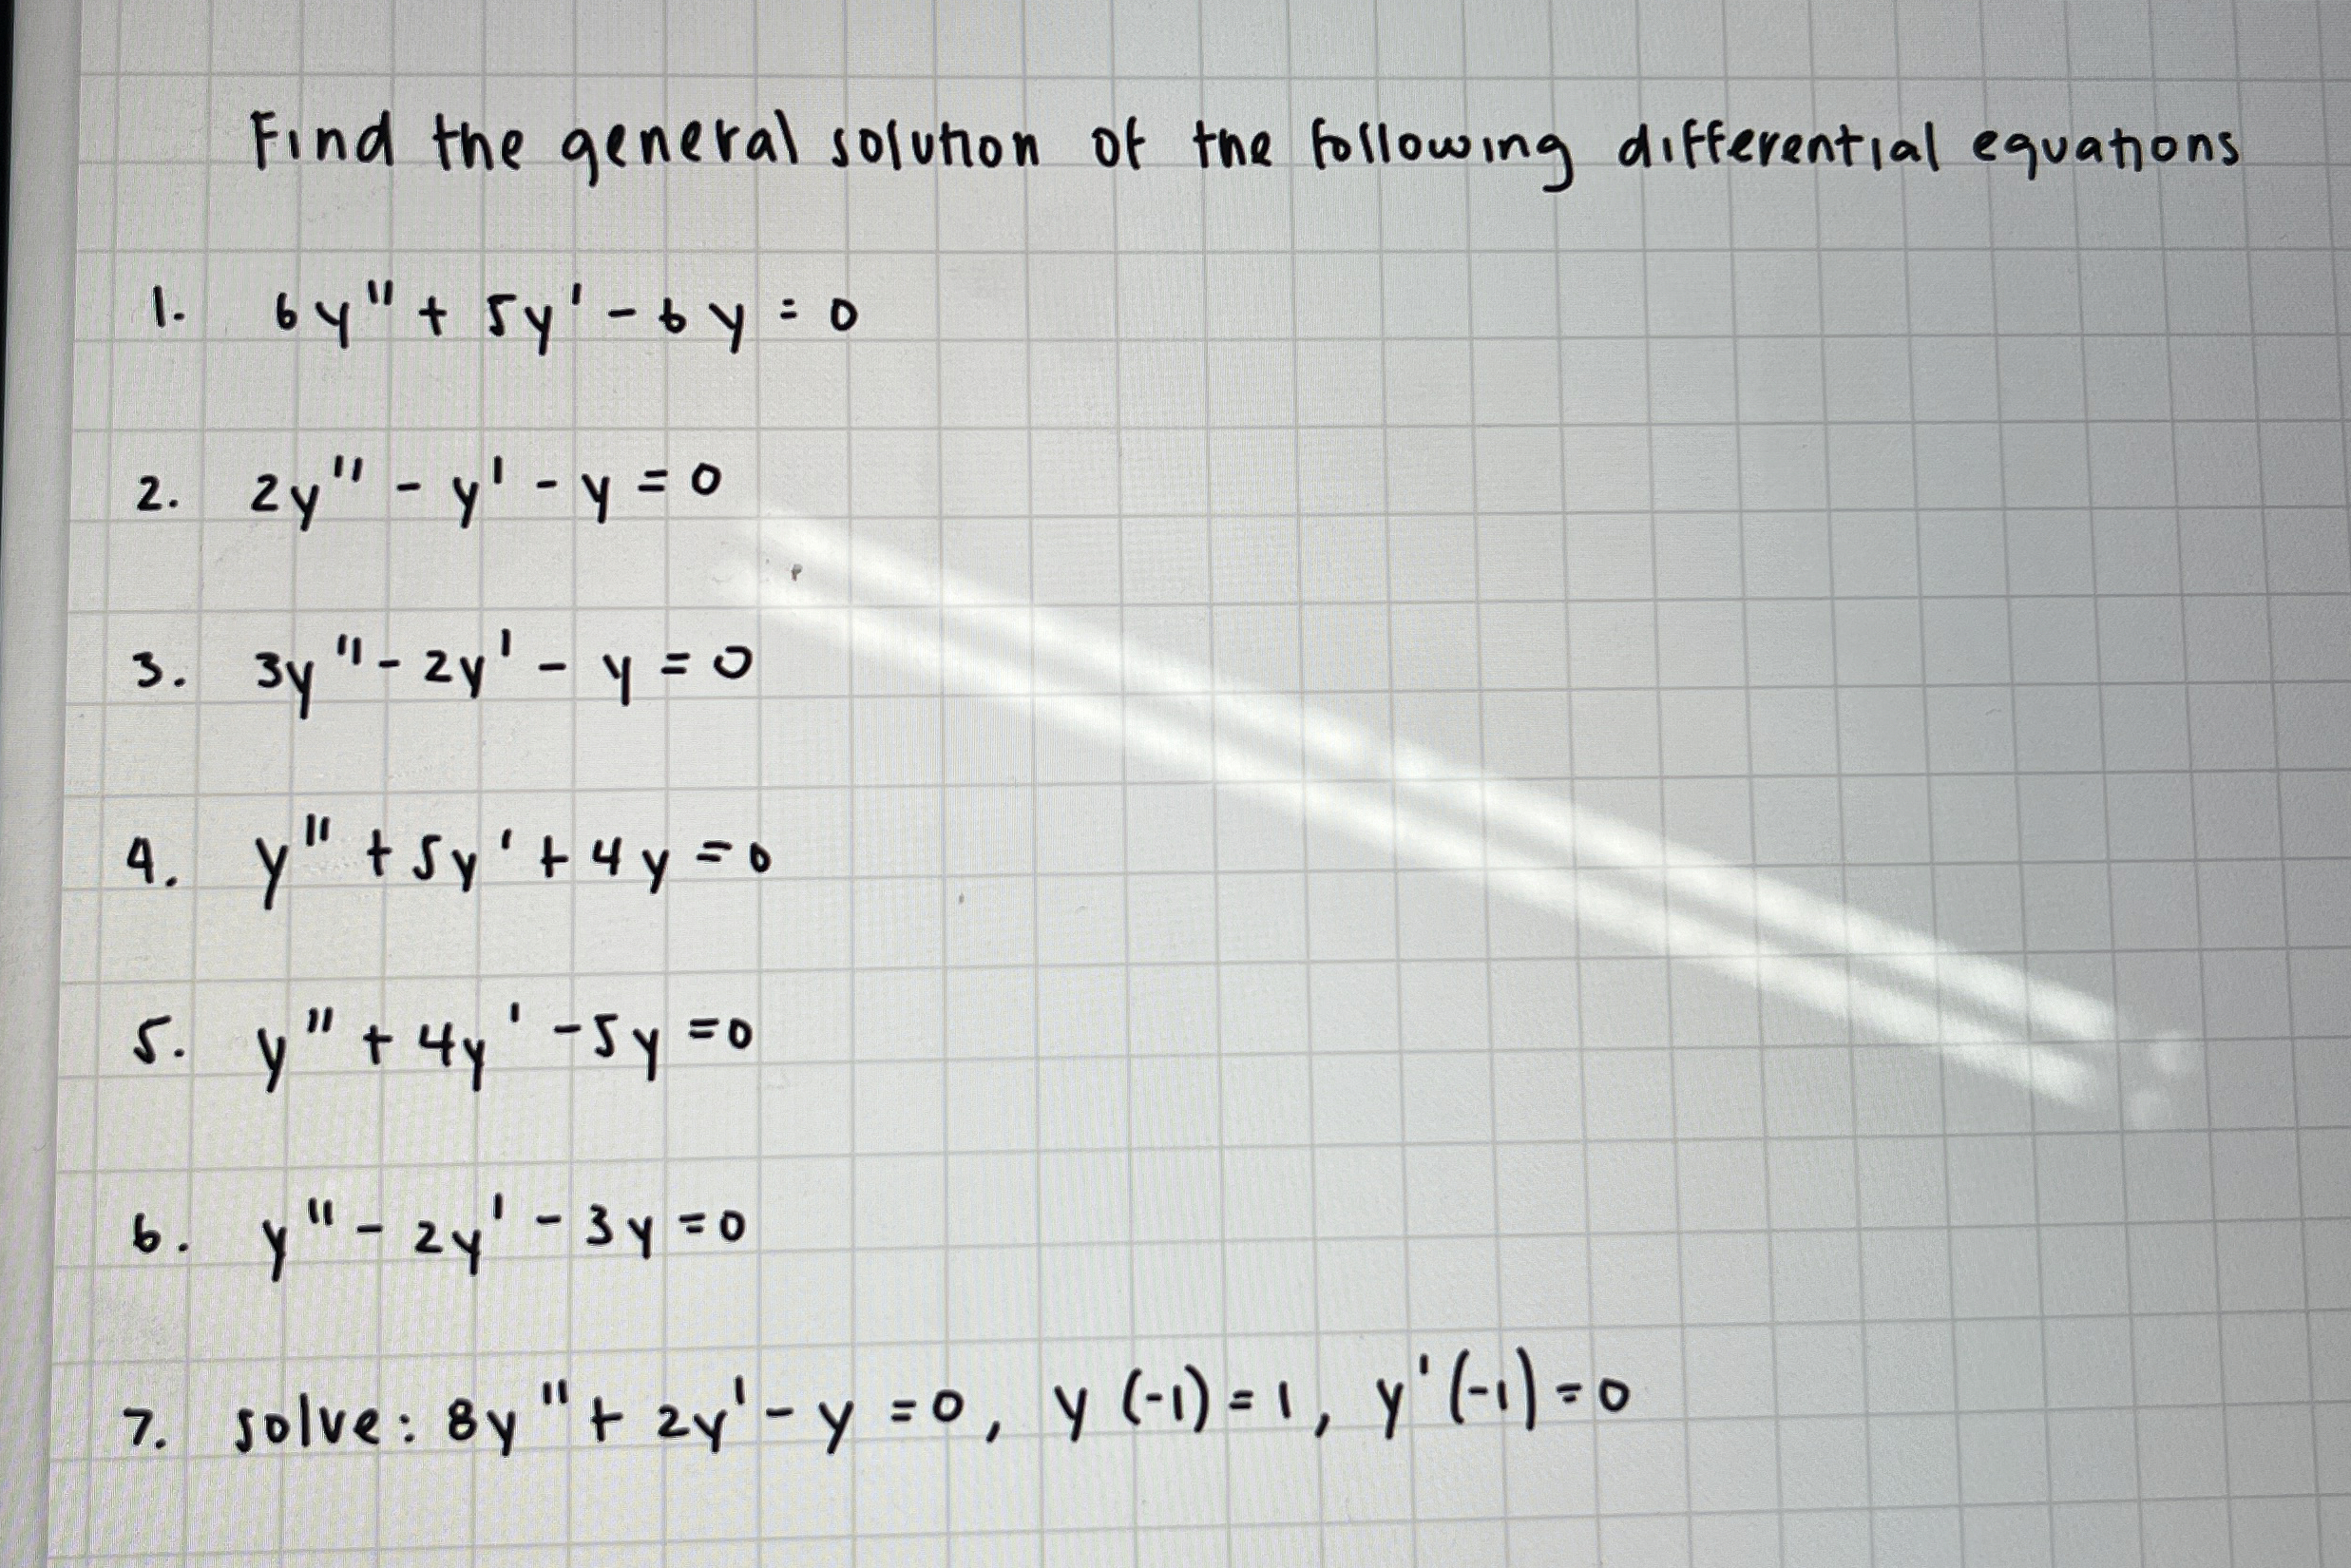 Find the general solution of the following differential equations
1. 6y" + 5y' - 6y = 0
2. 2y" - y' - y = 0
3. 3y" - 2y' - y = 0
4. y" + 5y' + 4y = 0
5. y" + 4y' - 5y = 0
6. y" - 2y' - 3y = 0
7. solve: 8y" + 2y' - y = 0, y (-1) = 1, y' (-1) = 0